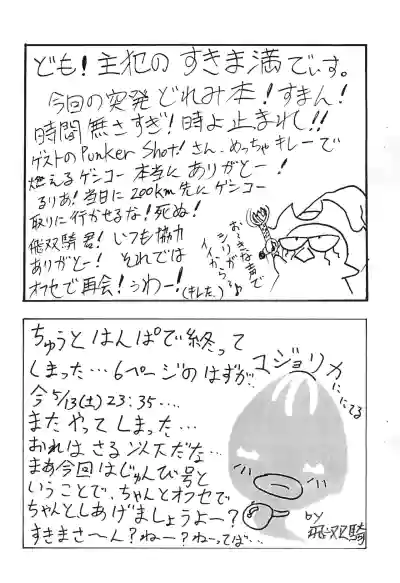 ども！主犯のすきま満でいす。
今回の突発どれみ本！すまん！
時間無さすぎ！時よ止まれ！！
ゲストのPunker Shot！さん、めっちゃキレーで
燃えるゲンコー本当にありがとー！
るりあ！当日に200km先にゲンコー
取りに行かせるな！死ぬ！
飛双騎君！いつも協力
ありがとー！それでは
オフセで再会！うわー！
(キレた。)
おーきな声で
シリが
イイからる♪
ちゅうとはんぱで終って
しまった…6ページのはずが…
今5/13(土)23:35…
またやってしまった…
おれはさる以下だな…
まあ今回はじゅんび号と
いうことで、ちゃんとオフセで
ちゃんとしあげましょうよー？
すきまさ〜ん？ねー？ねーってば…
マジョリカ
ににてる
by
飛双騎